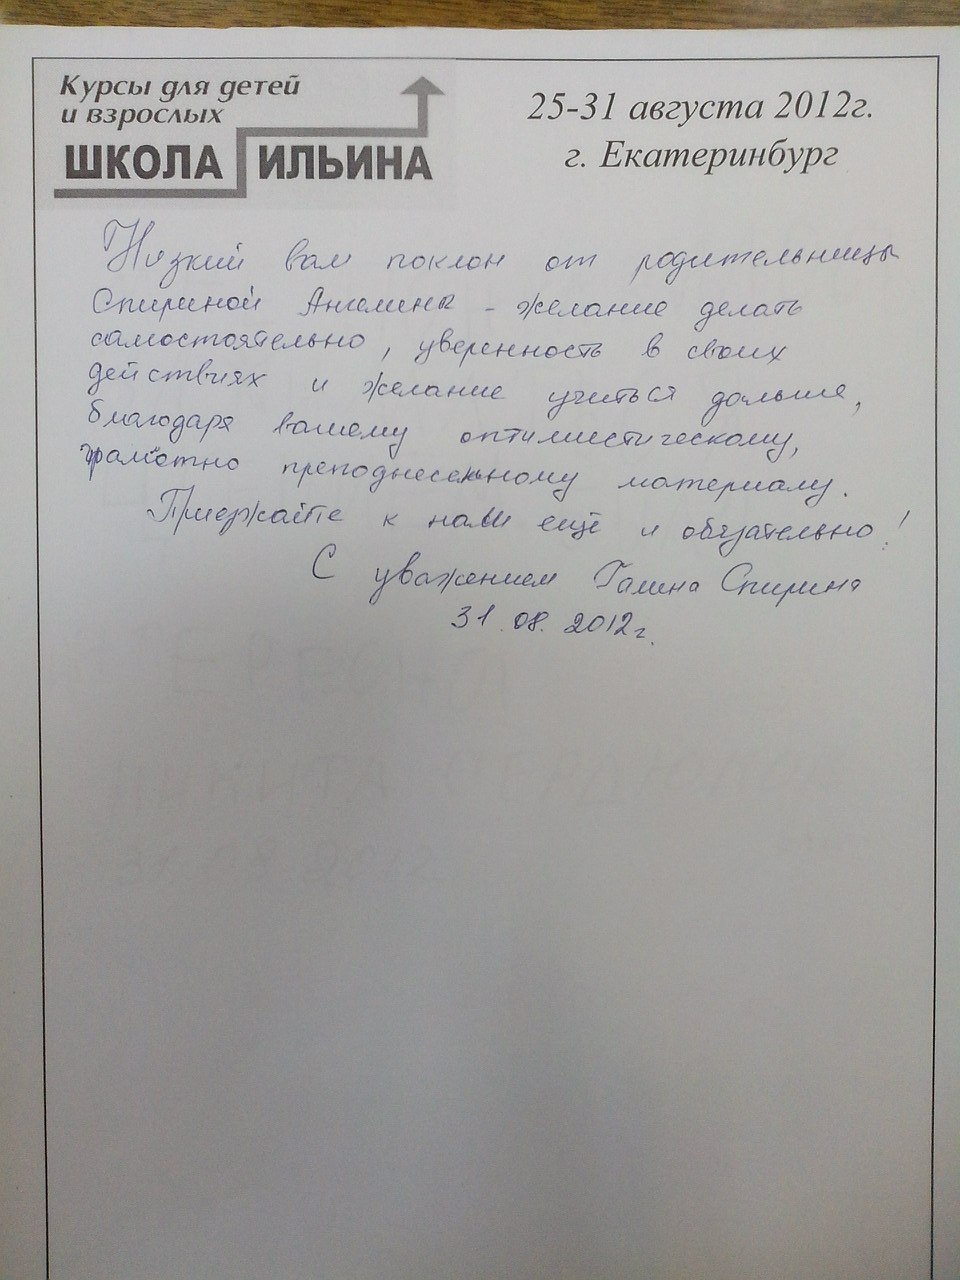 Курсы для детей
и взрослых
ШКОЛА ИЛЬИНА
25-31 августа 2012г.
г. Екатеринбург
Низкий вам поклон от родительницы
Спириной - желание делать
самостоятельно, уверенность в своих
действиях и желание учиться дальше,
благодаря вашему оптимистическому,
грамотно преподнесенному материалу.
Приезжайте к нам ещё и обязательно!
С уважением Галина Спирина
31.08.2012г.